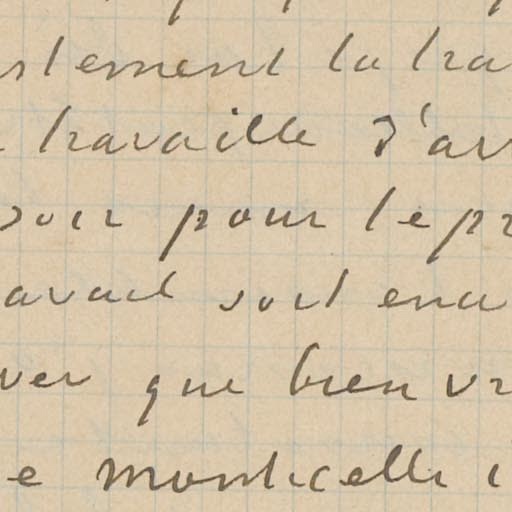 stement la tra
travaille J'av
soir pour le pr
avail soit enco
ver que bien vr
e monticelli i